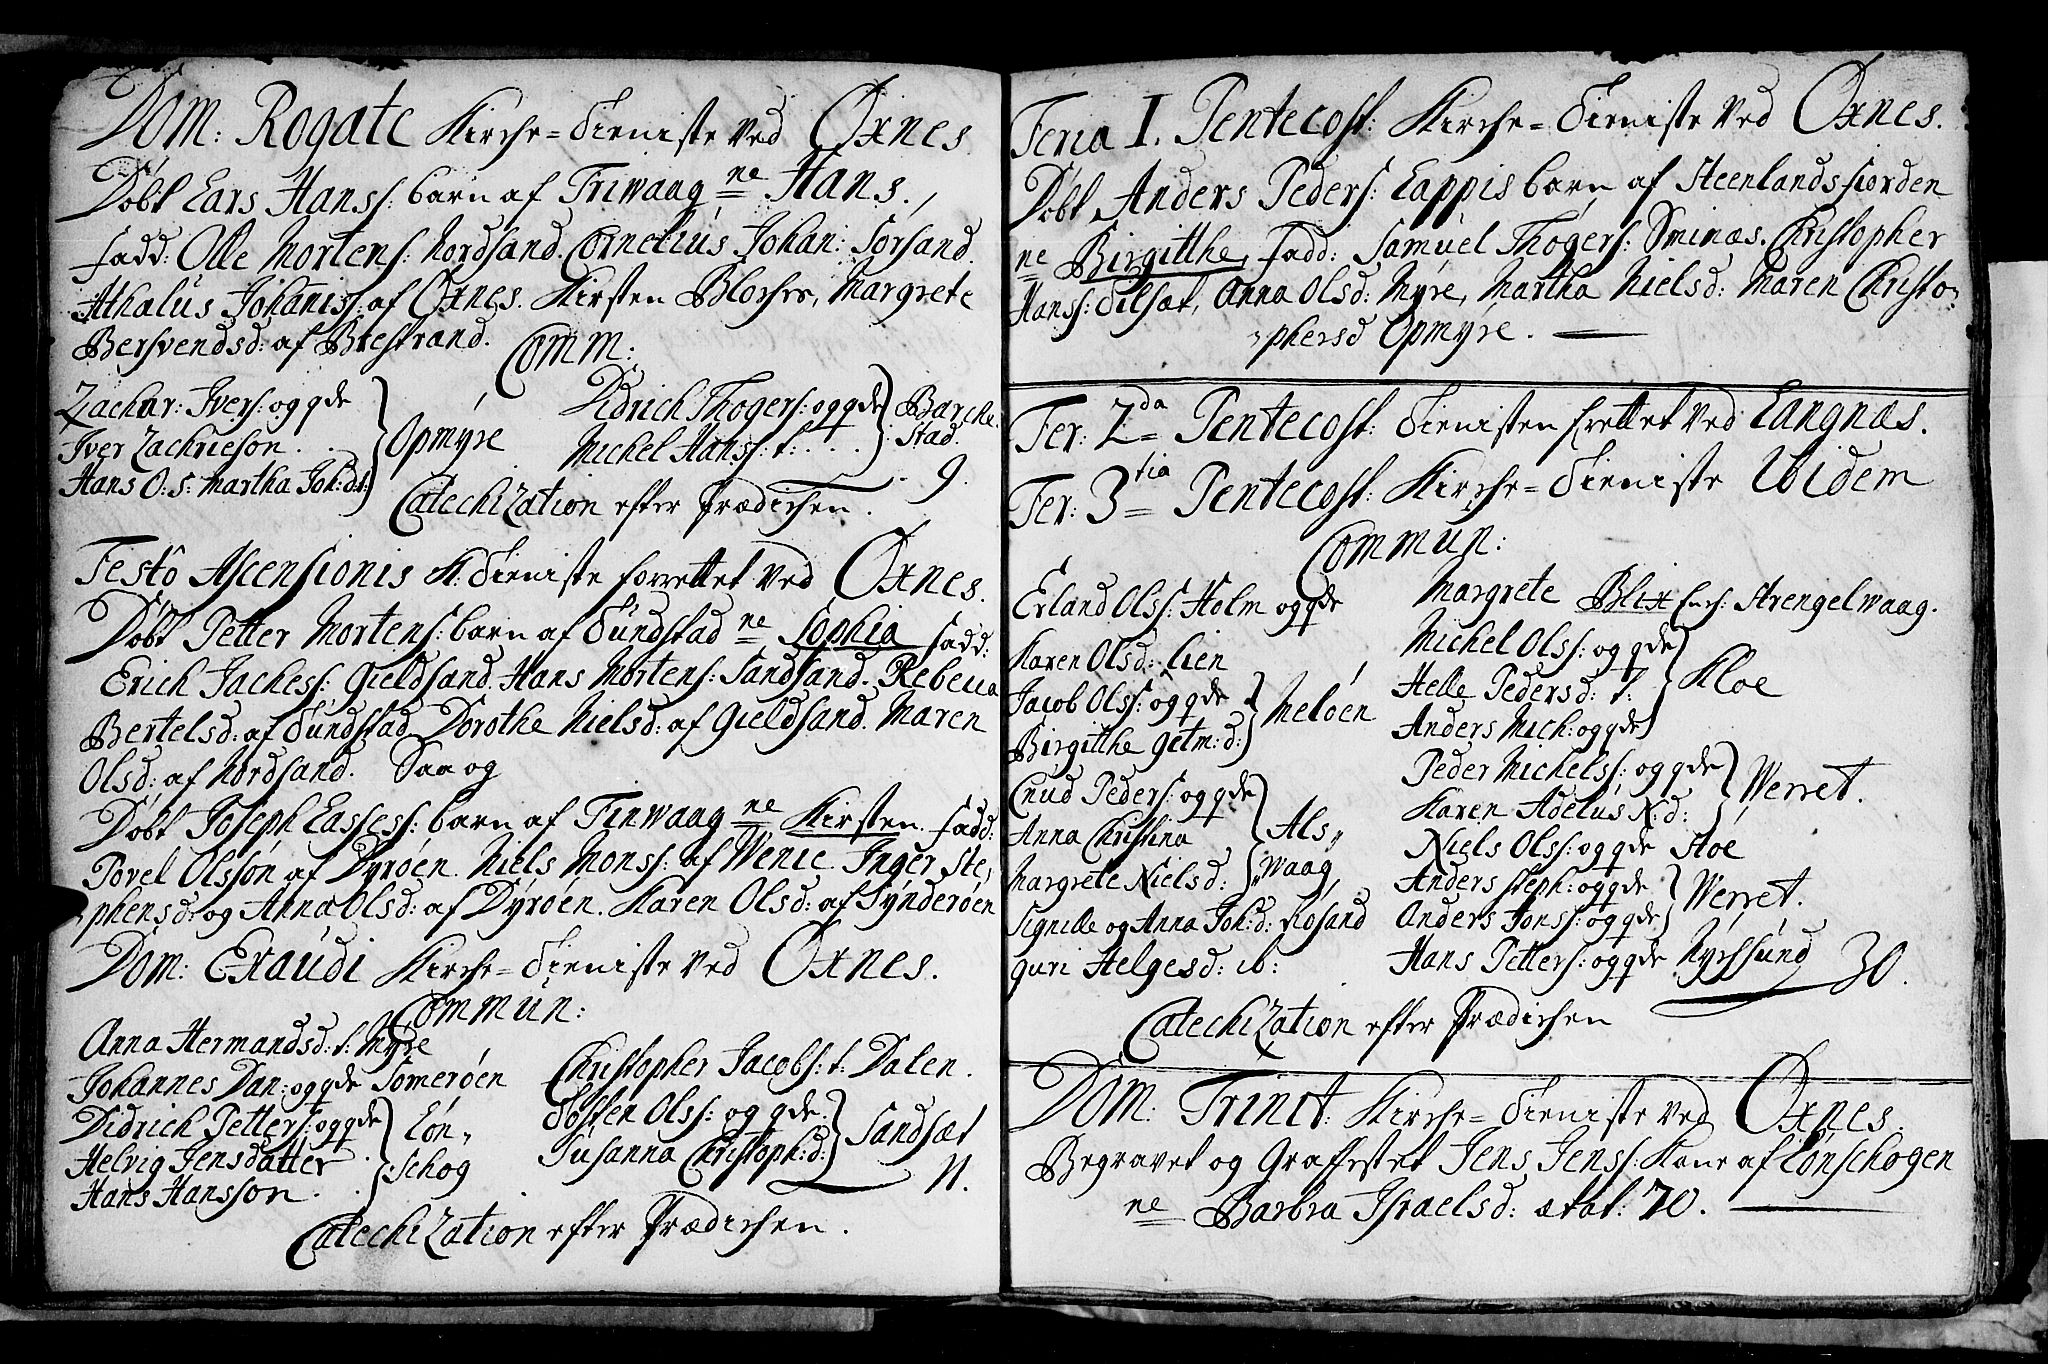 Dom: Rogate Kirche=Tieniste ved Oxnes.
Døbt Lars Hanss: barn af Triwaag ne Hans.
fadd: Olle Mortens: Nordsand. Cornelius Johan: Sørsand.
Athalus Johaniss: af Oxnes. Kirsten Blochs, Margrete
Bersvendsd: af Brestrand.
Comm:
Zachar: Ivers: og qde
Iver Zachrieson . .
Hans O: s: Martha Joh: d: t:
Opmyre
Didrich Thøgers: og qde
Michel Hanss: t: . . .
Barche
stad.
9.
Catechization efter Prædichen.
Festo Ascensionis K: Tieniste forrettet ved Oxnes.
Døbt Petter Mortens: barn af Tundstad ne Sophia fadd:
Erich Jachess: Gieldsand. Hans Mortens: Sandsand. Rebecca
Bertelsd: af Tundstad Dorothe Nielsd: af Gieldsand. Maren
Olsd: af Nordsand. Saa og
Døbt Joseph Lassess: barn af Tinwaag ne Kirsten. fadd:
Povel Olssøn af Dyrøen. Niels Monss: af Wenie Inger Ste„
„phensd: og Anna Olsd: af Dyrøen. Karen Olsd: af Tynderøen
Dom: Exaudi Kirche=Tieniste ved Oxnes.
Commun:
Anna Hermandsd: t: Myre
Johannes Dan: og qde Somerøen
Didrich Petters: og qde
Helvig Jensdatter .
Hans Hansson . .
Løn„
„schog
Christopher Jacobs: t: Dalen.
Tosten Olss: og qde.
Susanna Christoph: d:
Sandsæt
11.
Catechization efter Prædichen.
Feria I. Pentecost: Kirche=Tieniste ved Oxnes.
Døbt Anders Peders: Lappis barn af Steenlandsfiorden
ne Birgitthe, fadd: Samuel Thøgers: Sminæs. Christopher
Hanss: Tilsæt, Anna Olsd: Myre, Martha Nielsd: Maren Christo„
„phersd Opmyre.
Fer: 2da Pentecost: Tienisten frettet ved Langnæs.
Fer: 3tia Pentecost: Kirche=Tieniste Ibidem
Commun:
Erland Olss: Holm og qde
Karen Olsd: Lien
Jacob Olss: og qde
Birgitthe Getm: d:
Meløen
Cnud Peders: og qde
Anna Christina
Margrete Nielsd:
Als„
„waag,
Signille og Anna Joh: d: fiosand
Guri Helgesd: ib:
Margrete Blix Ench: Strengelwaag.
Michel Olss: og qde
Helle Pedersd: t:
Anders Mich: og qde
Kloe
Peder Michelss: og qde
Karen Adelus N: d:
Werret.
Niels Olss: og qde Støe
Anders Steph: og qde
Anders Jonss: og qde
Werret.
Hans Petters: og qde Nychsund
30.
Catechization efter Prædichen
Dom: Trinit: Kirche=Tieniste ved Oxnes.
Begravet og Graffestet Jens Jenss: Kone af Lønschogen
ne Barbra Israelsd: ætat: 70.